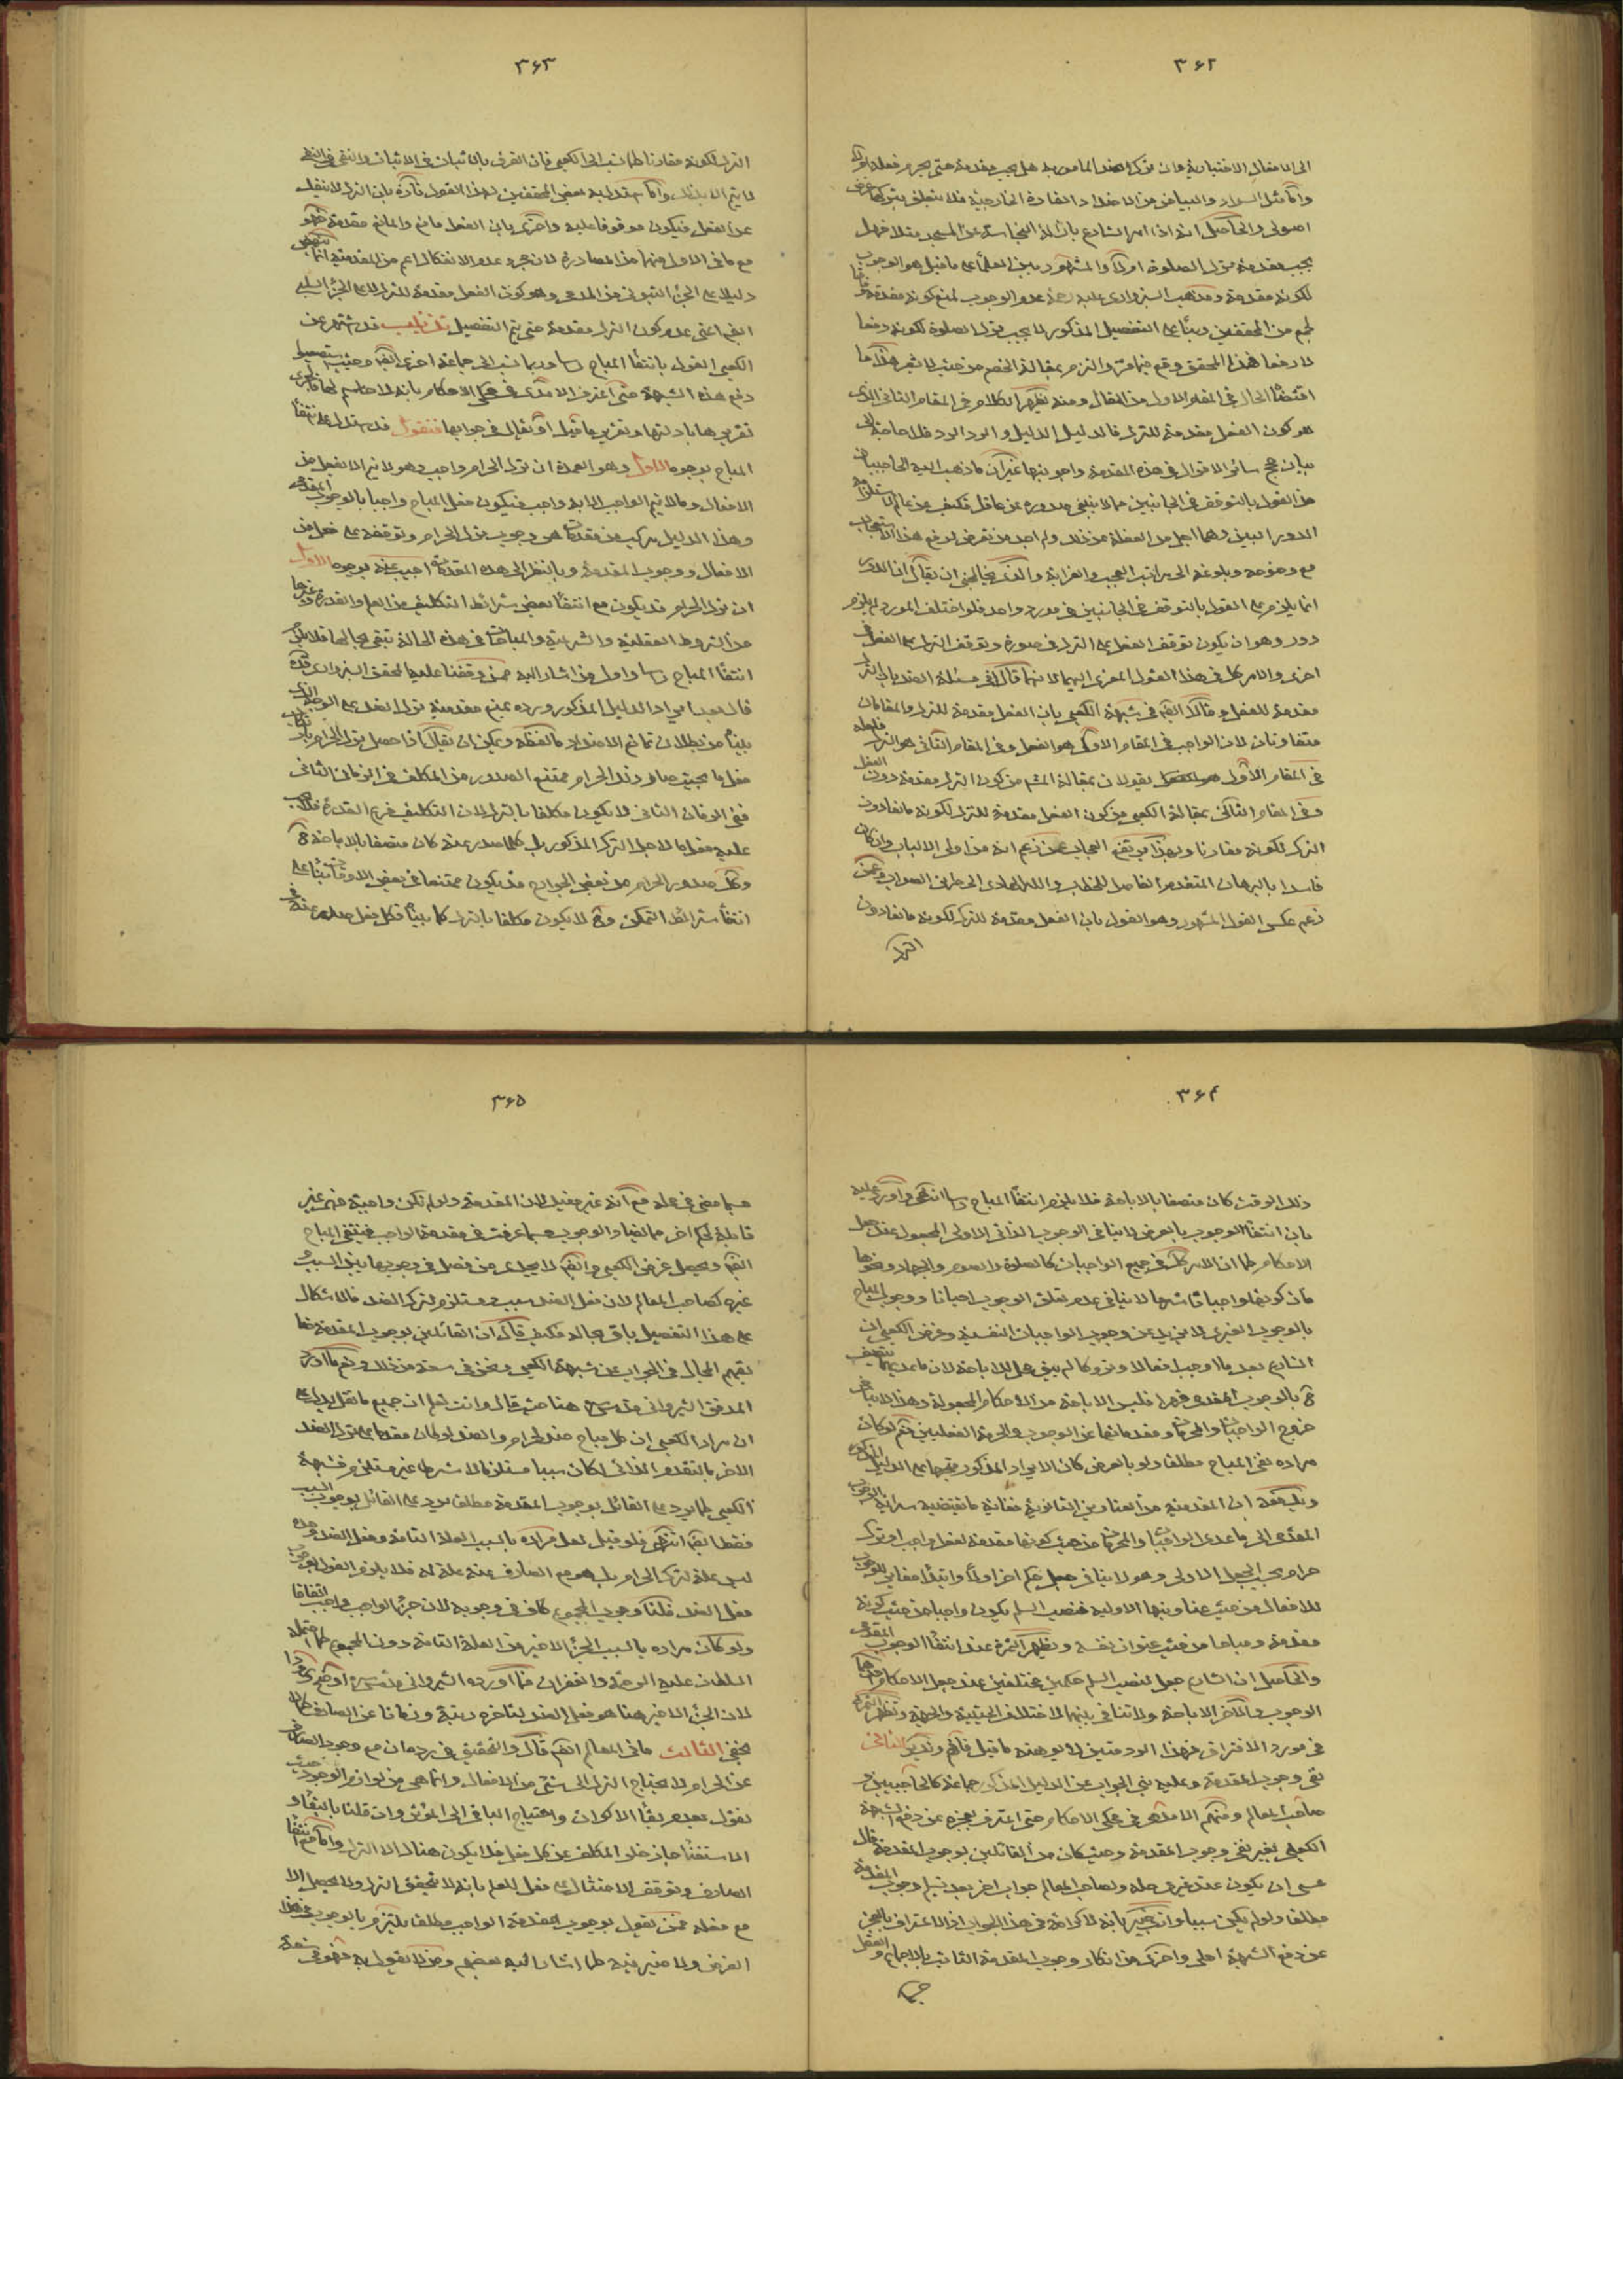 ۳۶۲
الى الافعال الاختيارية فان ترك الضد المامور به هل يجب مقدمة حتى يحرم فعله اولا
واما مثل السواد والبياض من الاضداد الخارجية فلا يتعلق بتركها غرض
اصولى والحاصل انه اذا امر الشارع بازالة النجاسة عن المسجد مثلا فهل
يجب مقدمة ترك الصلوة اولا والمشهور بين العلماء على ما قيل هو الوجوب
لكونه مقدمة ومذهب السبزوارى عليه رحمة عدم الوجوب لمنع كونه مقدمة
لجمع من المحققين وبناء على التفصيل المذكور لا يجب ترك الصلوة لكونه دفعا
لا رفعا فهذا المحقق وقع فيما فر والتزم بمقالة الخصم من حيث لا يشعر هذا ما
اقتضاه الحال فى المقام الاول من المقال ومنه يظهر الكلام فى المقام الثانى الذى
هو كون الفعل مقدمة للترك فالدليل الدليل والرد الرد فلا حاجة الى
بيان حجج سائر الاقوال فى هذه المقدمة واجوبتها غير ان ما ذهب اليه الحاجبيان
من القول بالتوقف فى الجانبين مما لا ينبغى صدوره عن عاقل فكيف عن عالم لاستلزامه
الدور البين وهما اجل من الغفلة عن ذلك ولم اجد من تعرض لدفع هذا الاستعجاب
مع وضوحه وبلوغه الى مراتب العجب والغرابة والذى يخالجنى ان يقال ان الدور
انما يلزم على القول بالتوقف فى الجانبين فى مورد واحد فلو اختلف المورد لم يلزم
دور وهو ان يكون توقف الفعل على الترك فى صورة وتوقف الترك على الفعل فى
اخرى والامر كل فى هذا القول المعزى اليهما لانهما قالا فى مسئلة الضد بان الترك
مقدمة للفعل وقالا ايضا فى شبهة الكعبى بان الفعل مقدمة للترك والمقامان
متفاوتان لان الواجب فى المقام الاول هو الفعل وفى المقام الثانى هو الترك
فى المقام الاول يقولان بمقالة المشهور من كون الترك مقدمة دون الفعل
وفى المقام الثانى بمقالة الكعبى من كون الفعل مقدمة للترك لكونه مانعا دون
الترك لكونه مقارنا وبهذا يرتفع العجاب عمن زعم انه من اولى الالباب وان كان
فاسدا بالبرهان المتقدم الفاصل للخطاب والله الهادى الى طريق الصواب وعمن
زعم عكس القول المشهور وهو القول بان الفعل مقدمة للترك لكونه مانعا دون
الترك
۳۶۳
الترك لكونه مقارنا كما نسب الى الكعبى فان الفرق بالاثبات فى الاثبات والنفى فى النفى
لا يتم الا بذلك واما استدل به بعض المحققين لهذا القول تارة بان الترك لا ينفك
عن الفعل فيكون موقوفا عليه واخرى بان الفعل مانع والمانع مقدمة فهو
مع ما فى الاول منهما من المصادرة لان مجرد عدم الانفكاك اعم من المقدمية انما ينهض
دليلا على الجزء الثبوتى من المدعى وهو كون الفعل مقدمة للترك لا على الجزء السلبى
ايضا اعنى عدم كون الترك مقدمة حتى يتم التفصيل تذنيب قد اشتهر عن
الكعبى القول بانتفاء المباح راسا وربما نسب الى جماعة اخرى ايضا وحيث استصعب
دفع هذه الشبهة حتى اعترف الامدى فى محكى الاحكام بانه لا حاسم لها
تقريرها بادلتها وتقرير ما قيل او يقال فى جوابها فنقول قد استدل على انتفاء
المباح بوجوه الاول وهو العمدة ان ترك الحرام واجب وهو لا يتم الا بفعل من
الافعال وما لا يتم الواجب الا به واجب فيكون فعل المباح واجبا بالوجوب المقدمى
وهذا الدليل مركب من مقدمات هى وجوب ترك الحرام وتوقفه على فعل من
الافعال ووجوب المقدمة وبالنظر الى هذه المقدمات اجيب عنه بوجوه الاول
ان ترك الحرام قد يكون مع انتفاء بعض شرائط التكليف من العلم والقدرة وغيرها
من الشروط العقلية والشرعية والمباحات فى هذه الحالة تبقى بحالها فلا يلزم
انتفاء المباح راسا واول من اشار اليه ممن وقفنا عليه المحقق السبزوارى قدس
قال بعد ايراد الدليل المذكور ورده بمنع مقدمية ترك الضد على الوجه الذى
بيناه من بطلان تمانع الاضداد ما لفظه ويمكن ان يقال اذا حصل ترك الحرام باول
فعل ما بحيث صار ذلك الحرام ممتنع الصدور من المكلف فى الزمان الثانى
ففى الزمان الثانى لا يكون مكلفا بالترك لان التكليف فرع القدرة فلا يجب
عليه فعل ما لاجل الترك المذكور بل كلما صدر عنه كان متصفا بالاباحة ح
وكل صدور الحرام من بعض الجوارح قد يكون ممتنعا فى بعض الاوقات بناء على
انتفاء شرائط التمكن وح لا يكون مكلفا بالترك كما بينا فكل فعل صدر عنه فى
۳۶۴
ذلك الوقت كان متصفا بالاباحة فلا يلزم انتفاء المباح راسا انتهى واورد عليه
بان انتفاء الوجوب بالعرض لا ينافى الوجوب الذاتى الاولى المجعول عند جعل
الاحكام كما ان الامر كل فى جميع الواجبات كالصلوة والصوم والجهاد ونحوها
فان كونها واجبات لا ينافى عدم تعلق الوجوب احيانا ووجوب المباح
بالوجوب الغيرى لا يزيد عن وجوب الواجبات النفسية وغرض الكعبى ان
الشارع بعد ما اوجب افعالا وتروكا لم يبق محل للاباحة لان ما عداها يتصف
ح بالوجوب المقدمى فليس الاباحة من الاحكام المجعولة وهذا لا ينافى
خروج الواجبات والمحرمات ومقدماتهما عن الوجوب والحرمة الفعليين نعم لو كان
مراده نفى المباح مطلقا ولو بالعرض كان الايراد المذكور متجها على الدليل المذكور
ويدفعه ان المقدمية من العناوين الثانوية فغاية ما تقتضيه سراية الوجوب
المقدمى الى ما عدى الواجبات والمحرمات من حيث كونها مقدمة لفعل واجب او ترك
حرام بحسب الجعل الاولى وهو لا ينافى جعل حكم اخر اولا وابتداء مغاير للوجوب
للافعال من حيث عناوينها الاولية فنصب السلم يكون واجبا من حيث كونه
مقدمة ومباحا من حيث عنوان نفسه ويظهر الثمرة عند انتفاء الوجوب المقدمى
والحاصل ان الشارع جعل لنصب السلم حكمين مختلفين عند جعل الاحكام
الوجوب والاخر الاباحة ولا تنافى بينهما لاختلاف الحيثية والجهة وتظهر الثمرة
فى مورد الافتراق فهذا الرد متين لا يوهنه ما قيل فافهم وتدبر الثانى
نفى وجوب المقدمة وعليه بنى الجواب عن الدليل المذكور جماعة كالحاجبيين و
صاحب المعالم ومنهم الامدى فى محكى الاحكام حتى اعترف بعجزه عن دفع شبهة
الكعبى بغير نفى وجوب المقدمة وحيث كان من القائلين بوجوب المقدمة قال
عسى ان يكون عند غيرى حله ولصاحب المعالم جواب اخر بعد تسليم وجوب المقدمة
مطلقا ولو لم يكن سببا وانت خبير بانه لا كرامة فى هذا الجواب اذ الاعتراف بالعجز
عن دفع الشبهة احلى واحرى من انكار وجوب المقدمة الثابت بالاجماع والعقل
۳۶۵
حسبما مضى فى محله مع انه غير مفيد لان المقدمة ولو لم تكن واجبة فهى غير
قابلة لحكم اخر مما يضاد الوجوب حسبما عرفت فى مقدمة الواجب فينتفى المباح
ايضا ويحصل غرض الكعبى وايضا لا يجدى من فصل فى وجوبها بين السبب و
غيره كصاحب المعالم لان فعل الضد سبب ومستلزم لترك الضد فالاشكال
على هذا التفصيل باق بحاله فكيف قال ان القائلين بوجوب المقدمة
يضيق المجال فى الجواب عن شبهة الكعبى ونحن فى سعة من ذلك ونعم ما اورد
المدقق الشيروانى قدس سره هنا حيث قال وانت تعلم ان جميع ما نقل يدل على
ان مراد الكعبى ان كل مباح ضد لحرام والضد لو كان مقدما على ترك الضد
الاخر بالتقدم الذاتى لكان سببا مستلزما لا شرطا غير مستلزم فشبهة
الكعبى كما يرد على القائل بوجوب المقدمة مطلقا يرد على القائل بوجوب السبب
فقط ايضا انتهى فلو قيل لعل مراده بالسبب العلة التامة وفعل الضد وحده
ليس علة لترك الحرام بل هو مع الصارف عنه علة له فلا يلزم القول بوجوب
فعل الضد قلنا وجوب المجموع كاف فى وجوبه لان جزء الواجب واجب اتفاقا
ولو كان مراده بالسبب الجزء الاخير من العلة التامة دون المجموع كما احتمله
السلطان عليه الرحمة والغفران فما اورده الشيروانى قدس سره اوضح ورودا
لان الجزء الاخير هنا هو فعل الضد لتاخره رتبة وزمانا عن الصارف كما لا
يخفى الثالث ما فى المعالم ايضا قال والتحقيق فى رده ان مع وجود الصارف
عن الحرام لا يحتاج الترك الى شئ من الافعال وانما هى من لوازم الوجود حيث
نقول بعدم بقاء الاكوان واحتياج الباقى الى المؤثر وان قلنا بالبقاء و
الاستغناء جاز خلو المكلف من كل فعل فلا يكون هناك الا الترك واما مع انتفاء
الصارف وتوقف الامتثال على فعل للعلم بانه لا يتحقق الترك ولا يحصل الا
مع فعله فمن يقول بوجوب المقدمة الواجب مطلقا يلتزم بالوجوب فى هذا
الفرض ولا ضير فيه كما اشار اليه بعضهم ومن لا يقول به فهو فى سعة